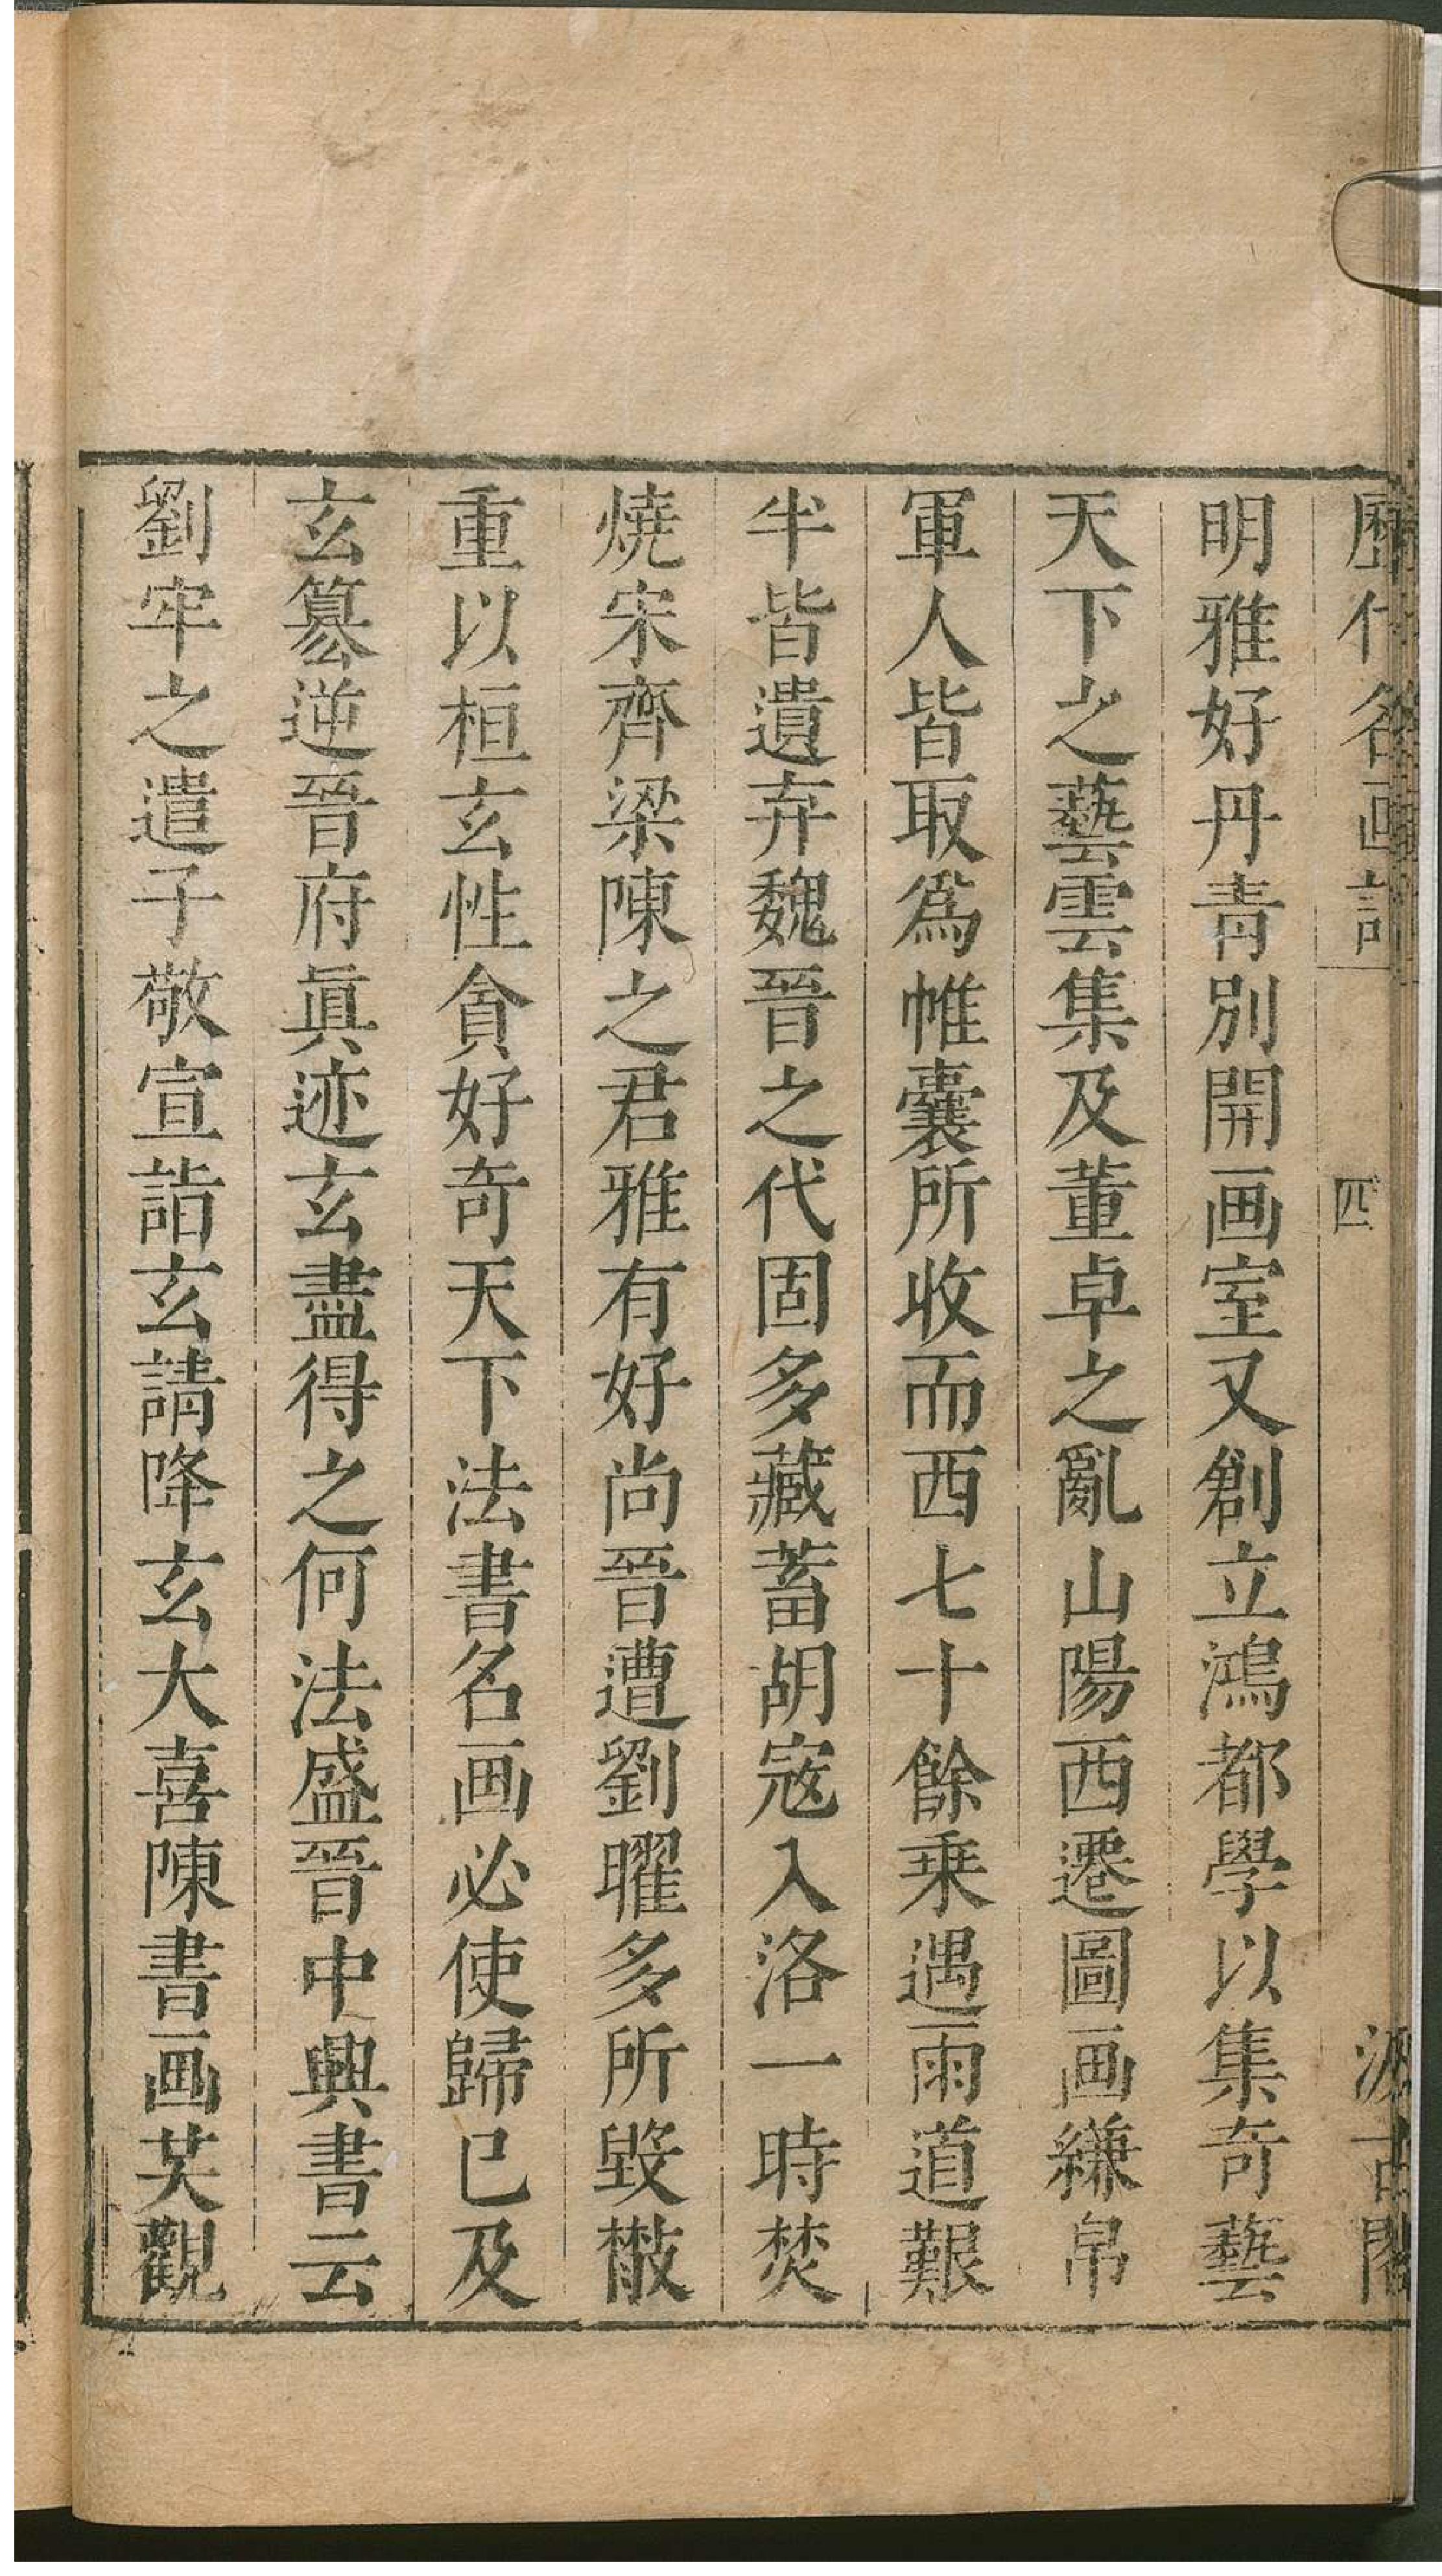 歷代名画記 四 汲古閣
明雅好丹青別開画室又創立鴻都學以集奇藝
天下之藝雲集及董卓之亂山陽西遷圖画縑帛
軍人皆取爲帷囊所收而西七十餘乗遇雨道艱
半皆遺弃魏晉之代固多藏蓄胡宼入洛一時焚
燒宋齊梁陳之君雅有好尚晉遭劉曜多所毀散
重以桓玄性貪好奇天下法書名画必使歸已及
玄篡逆晉府眞迹玄盡得之何法盛晉中興書云
劉牢之遣子敬宣詣玄請降玄大喜陳書画共觀